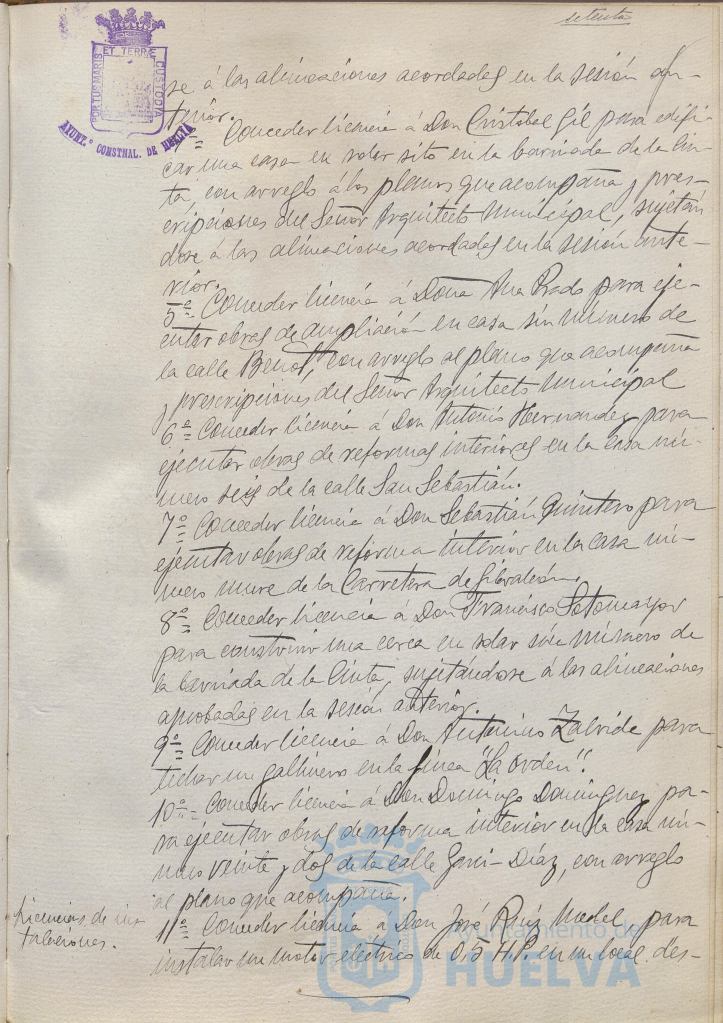 setenta
PORTUS MARIS ET TERRÆ CUSTODIA
AYUNT.º CONSTNAL. DE HUELVA
se á las alineaciones acordadas en la sesión an-
terior.
Conceder licencia á Don Cristobal Gil para edifi-
car una casa en solar sito en la barriada de la Cin-
ta, con arreglo á los planos que acompaña y pres-
cripciones del Señor Arquitecto Municipal, sujetán
dose á las alineaciones acordadas en la sesión ante-
rior.
5º Conceder licencia á Doña Ana Prado para eje-
cutar obras de ampliación en casa sin número de
la calle Benot, con arreglo al plano que acompaña
y prescripciones del Señor Arquitecto Municipal
6º Conceder licencia á Don Antonio Hernandez para
ejecutar obras de reformas interiores en la casa nú-
mero seis de la calle San Sebastián.
7º Conceder licencia á Don Sebastián Quintero para
ejecutar obras de reforma interior en la casa nú-
mero nueve de la Carretera de Gibraleón.
8º Conceder licencia á Don Francisco Sotomayor
para construir una cerca en solar sin número de
la barriada de la Cinta, sujetándose á las alineaciones
aprobadas en la sesión anterior.
9º Conceder licencia á Don Antonino Zalvide para
techar un gallinero en la finca "La Orden".
10º Conceder licencia á Don Domingo Dominguez pa-
ra ejecutar obras de reforma interior en la casa nú-
mero veinte y dos de la calle Garci-Díaz, con arreglo
al plano que acompaña.
Licencias de ins
talaciones.
11º Conceder licencia á Don José Ruiz Medel para
instalar un motor eléctrico de 0,5 H.P. en un local des-
Ayuntamiento de
HUELVA